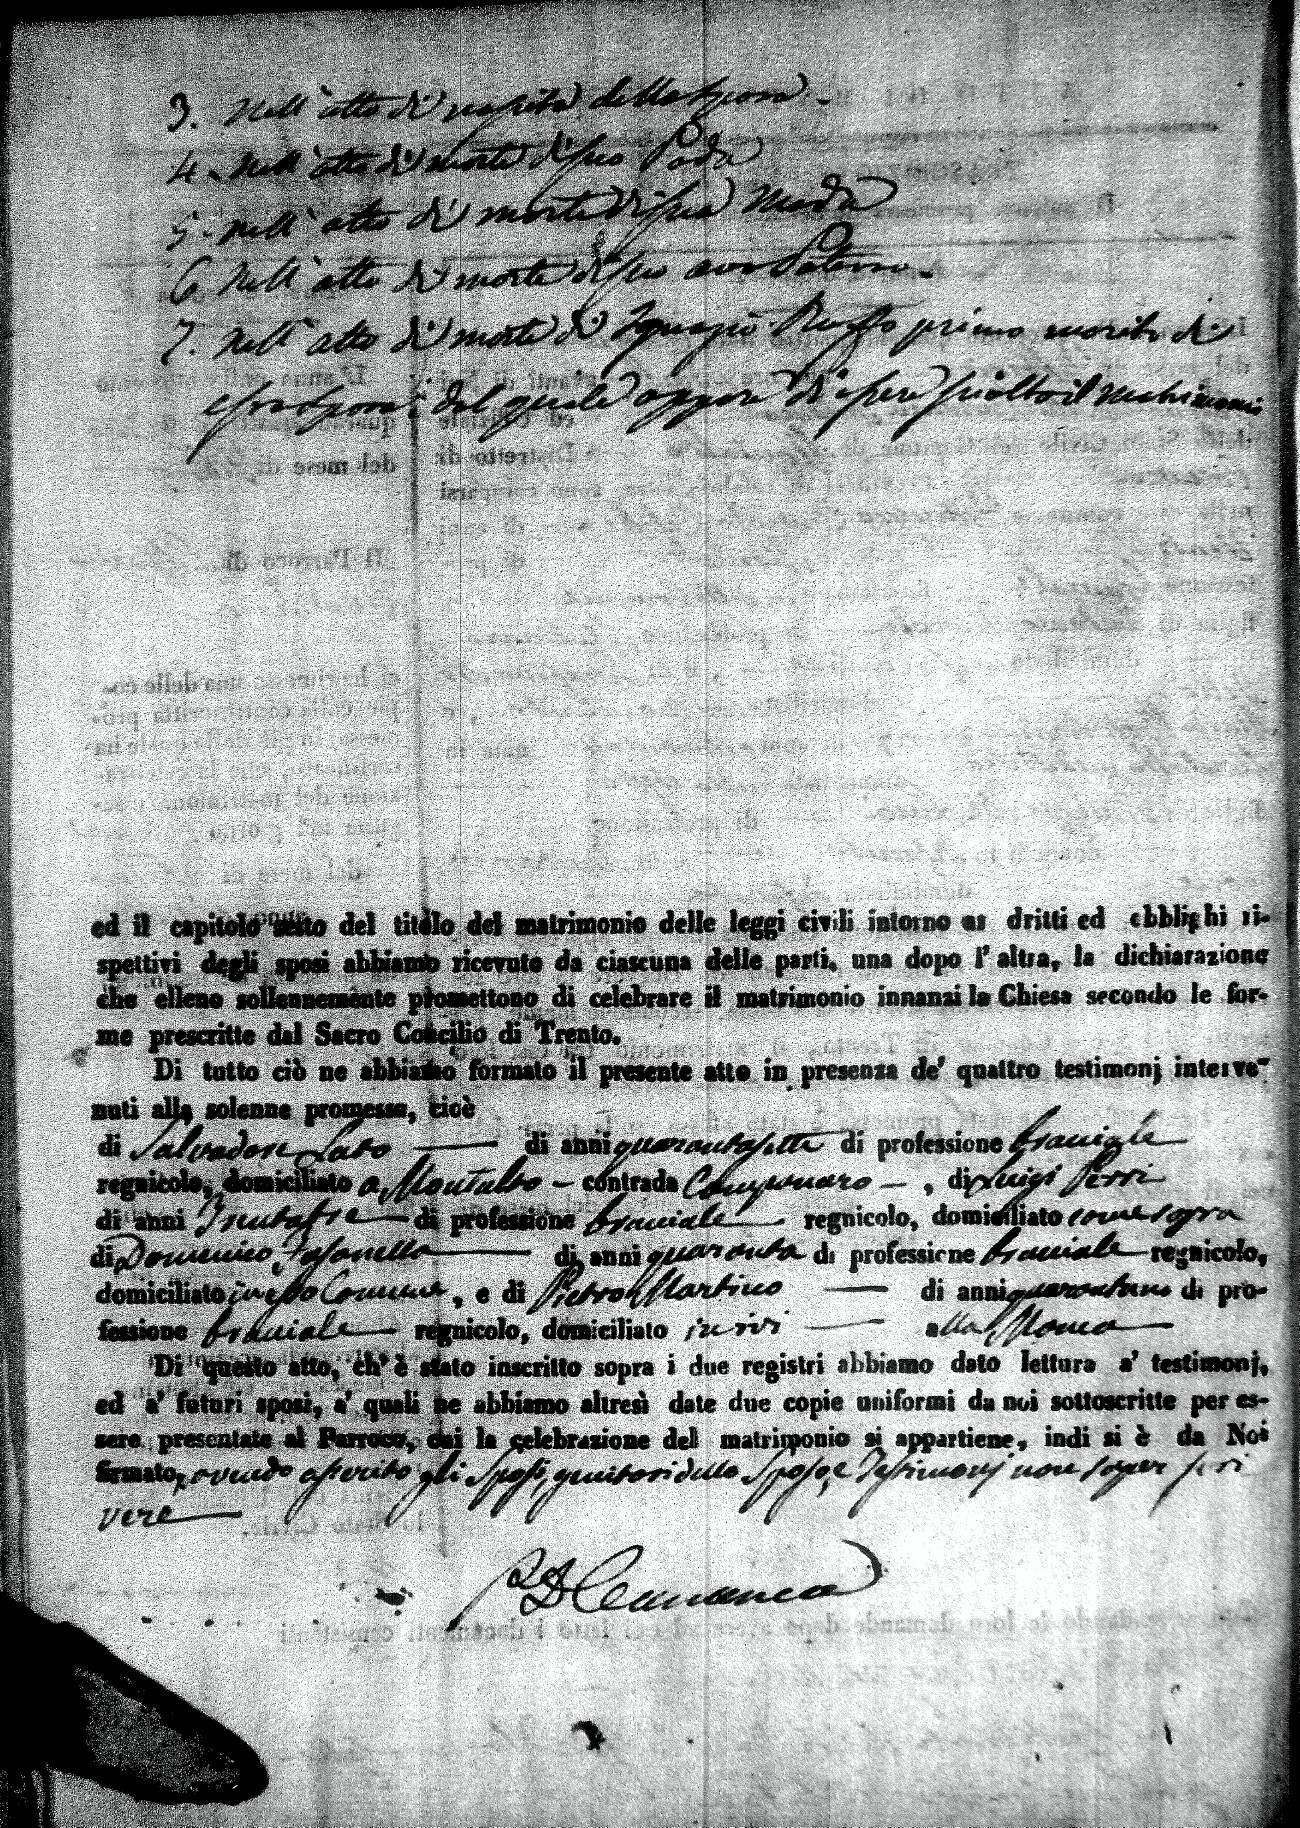 3. Nell'atto di nascita della sposa.
4. Nell'atto di morte di suo Padre
5. Nell'atto di morte di sua Madre
6. Nell'atto di morte di suo avo Paterno.
7. Nell'atto di morte di Ignazio Ruffo primo marito di
essa sposa, dal quale appare di essere sciolto il Matrimonio
ed il capitolo sesto del titolo del matrimonio delle leggi civili intorno ai dritti ed obblighi ri-
spettivi degli sposi abbiamo ricevuto da ciascuna delle parti, una dopo l'altra, la dichiarazione
che elleno sollennemente promettono di celebrare il matrimonio innanzi la Chiesa secondo le for-
me prescritte dal Sacro Concilio di Trento.
Di tutto ciò ne abbiamo formato il presente atto in presenza de' quattro testimonj interve-
nuti alla solenne promessa, cioè
di Salvadore Lato di anni quarantasette di professione bracciale
regnicolo, domiciliato a Montalto - contrada - , di Luigi Perri
di anni Trentatre di professione bracciale regnicolo, domiciliato come sopra
di Domenico Fasanella di anni quaranta di professione bracciale regnicolo,
domiciliato in esso Comune, e di Pietro Martino di anni quarantuno di pro-
fessione bracciale regnicolo, domiciliato in ivi alla
Di questo atto, ch'è stato inscritto sopra i due registri abbiamo dato lettura a' testimonj,
ed a' futuri sposi, a' quali ne abbiamo altresì date due copie uniformi da noi sottoscritte per es-
sere presentate al Parroco, cui la celebrazione del matrimonio si appartiene, indi si è da Noi
firmato, avendo asserito gli Sposi, genitori dello Sposo, e Testimonj non saper scri
vere